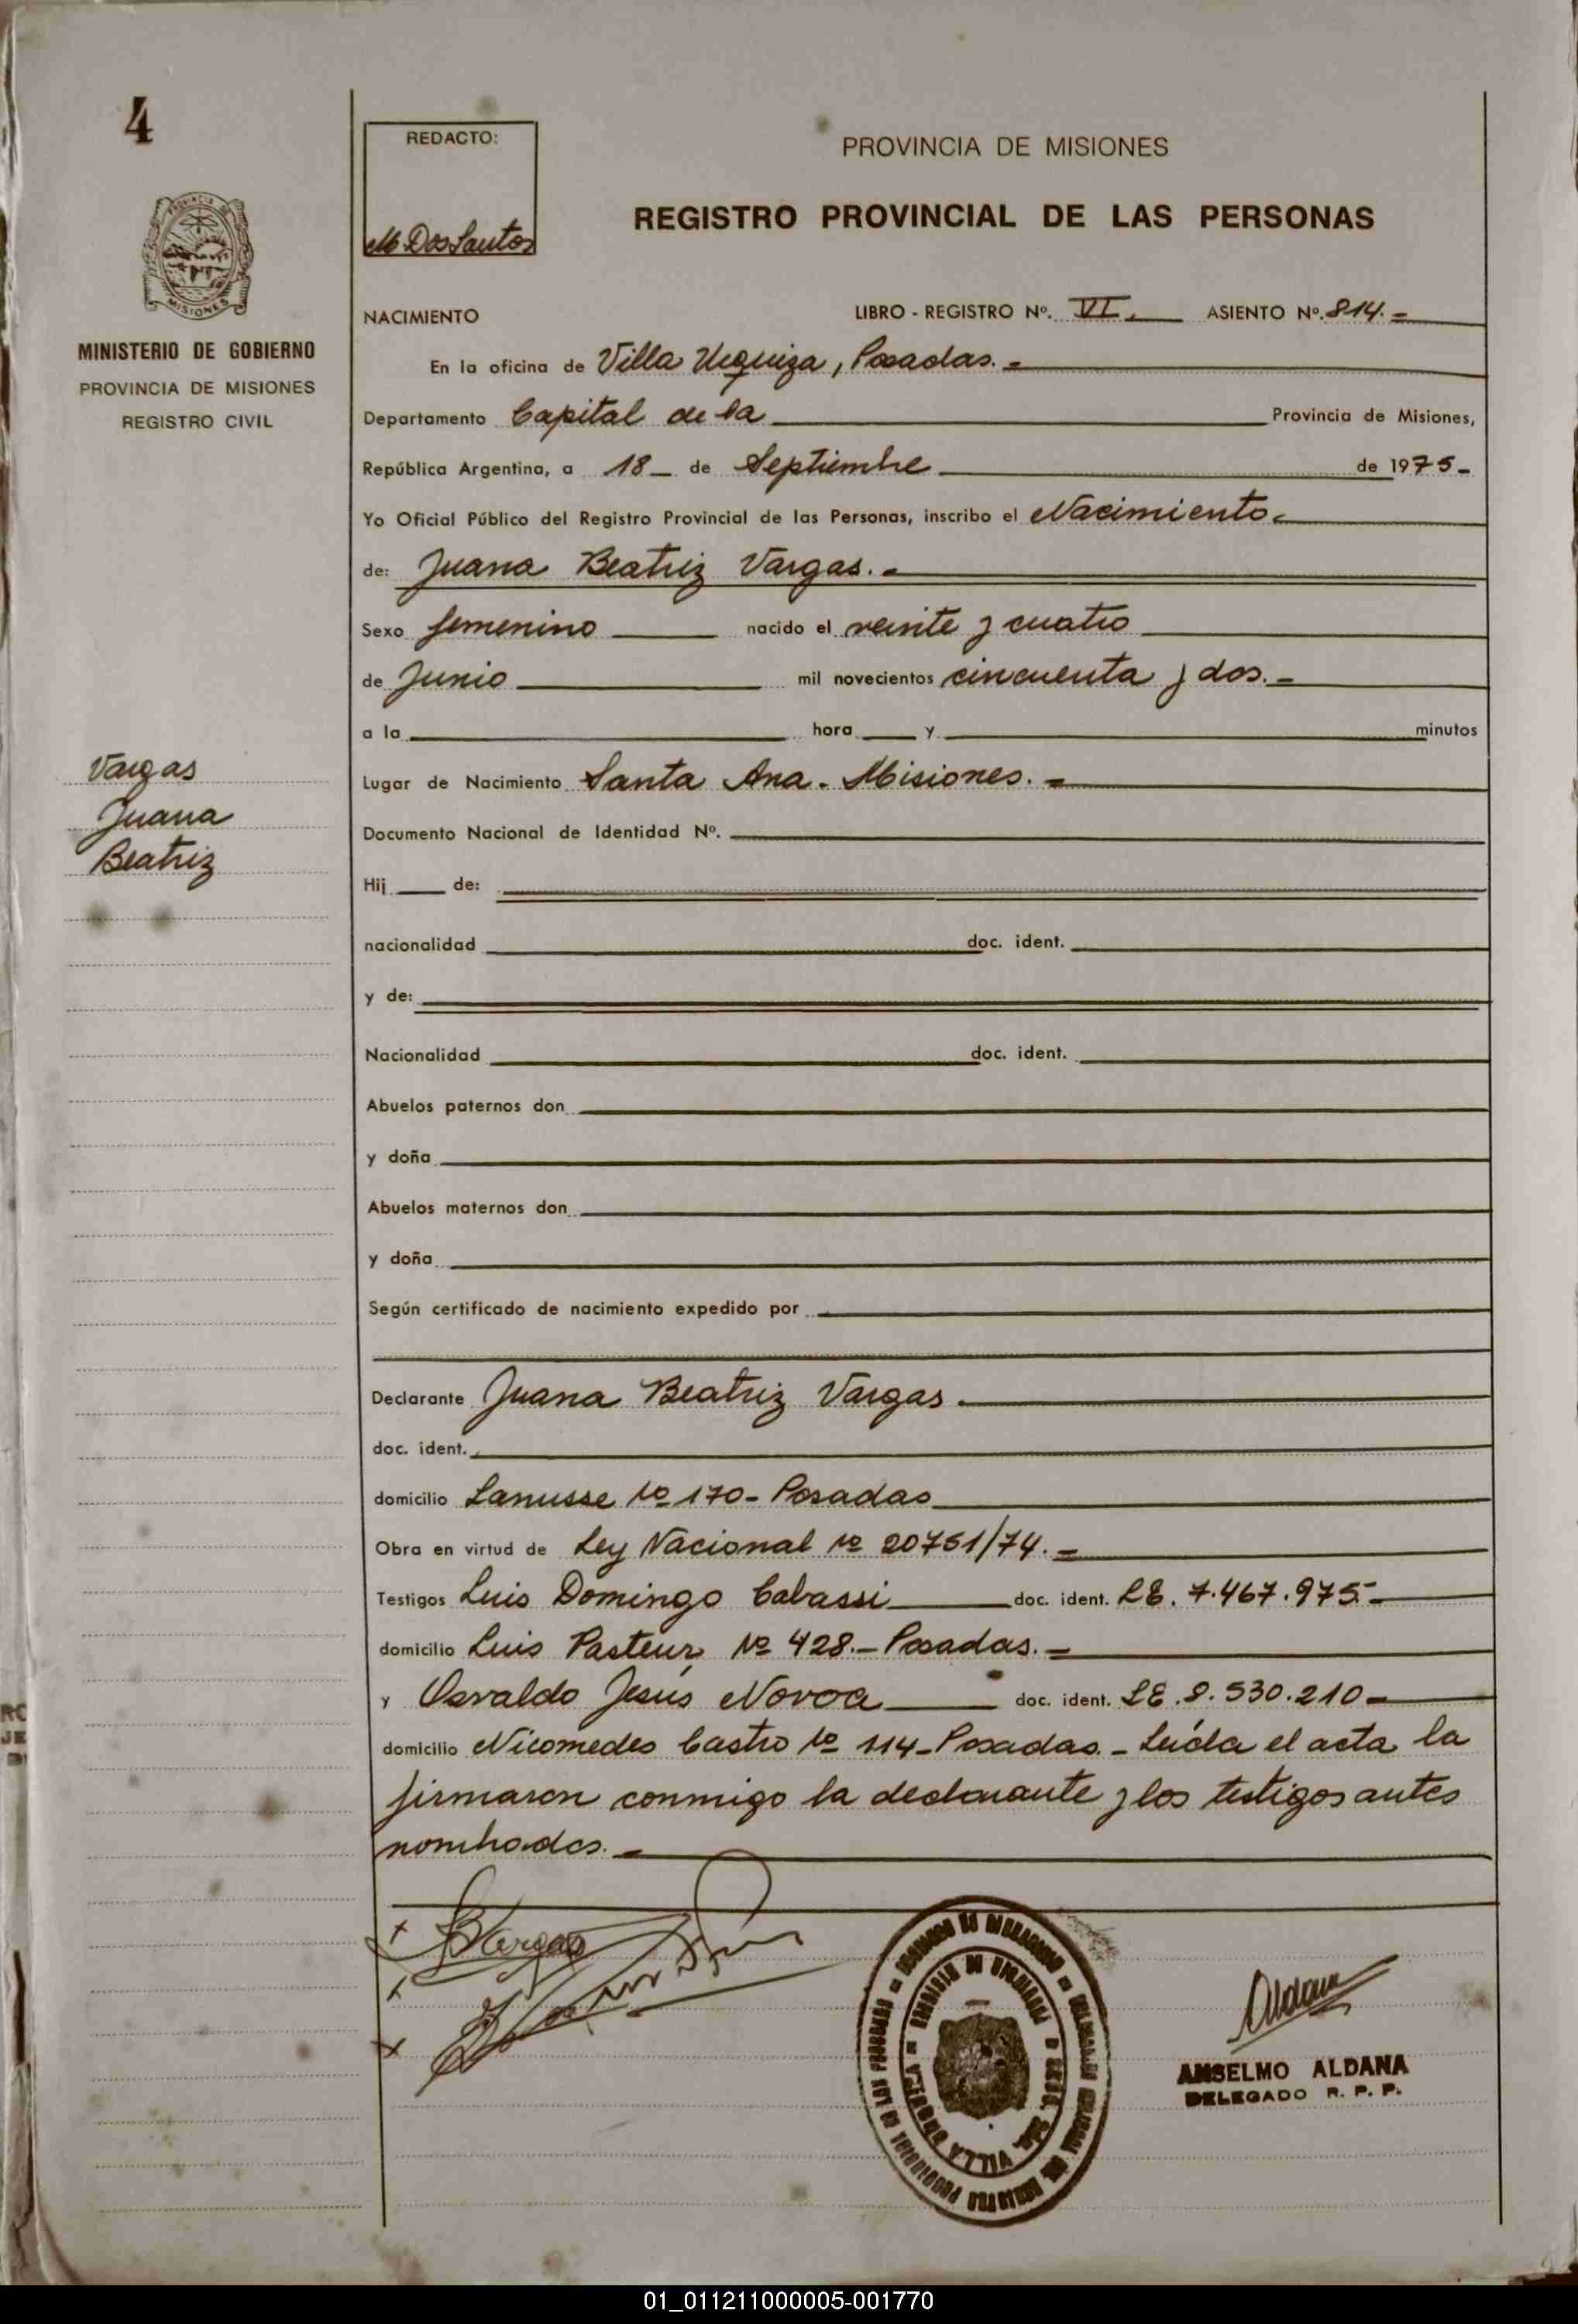 4
REDACTO:
M. Dos Santos
PROVINCIA DE MISIONES
REGISTRO PROVINCIAL DE LAS PERSONAS
MISIONES
MINISTERIO DE GOBIERNO
PROVINCIA DE MISIONES
REGISTRO CIVIL
NACIMIENTO LIBRO - REGISTRO Nº. VI.- ASIENTO Nº. 814.-
En la oficina de Villa Urquiza, Posadas.-
Departamento Capital de la Provincia de Misiones,
República Argentina, a 18 de Septiembre de 1975-
Yo Oficial Público del Registro Provincial de las Personas, inscribo el Nacimiento
de: Juana Beatriz Vargas.-
Sexo femenino nacido el veinte y cuatro
de Junio mil novecientos cincuenta y dos.-
a la hora y minutos
Vargas
Juana
Beatriz
Lugar de Nacimiento Santa Ana - Misiones.-
Documento Nacional de Identidad Nº.
Hij de:
nacionalidad doc. ident.
y de:
Nacionalidad doc. ident.
Abuelos paternos don
y doña
Abuelos maternos don
y doña
Según certificado de nacimiento expedido por
Declarante Juana Beatriz Vargas.
doc. ident.
domicilio Lanusse Nº 170- Posadas
Obra en virtud de Ley Nacional Nº 20751/74.-
Testigos Luis Domingo Cabassi doc. ident. LE. 7.467.975.-
domicilio Luis Pasteur Nº 428.- Posadas.-
y Osvaldo Jesús Novoa doc. ident. LE. 8.530.210-
domicilio Nicomedes Castro Nº 114- Posadas.- Leída el acta la
firmaron conmigo la declarante y los testigos antes
nombrados.-
JBVargas
Aldana
VILLA URQUIZA
ANSELMO ALDANA
DELEGADO R. P. P.
01_011211000005-001770